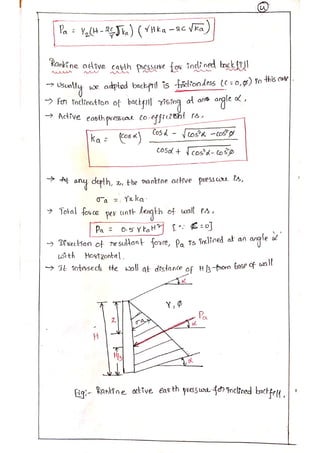 4
Pa = ½(H - 2c/γ √ka) (γHka - 2c √ka)
Rankine active earth pressure for inclined backfill
→ Usually we adopted backfill is frictionless (c=0, ø) in this case
→ For inclination of backfill rising at an angle α.
→ Active earth pressure co-efficient is.
ka = (cos α) cos α - √cos²α - cos²ø / cos α + √cos²α - cos²ø
→ At any depth, z, the rankine active pressure is,
σa = γzka.
→ Total force per unit length of wall is.
Pa = 0.5 γkaH² [∵ c = 0]
→ Direction of resultant force, Pa is inclined at an angle α
with Horizontal.
→ It intersect the wall at distance of H/3 from base of wall
α
γ, ø
Pa
Z
σa
α
H
H/3
α
Fig:- Rankine active earth pressure for inclined backfill.